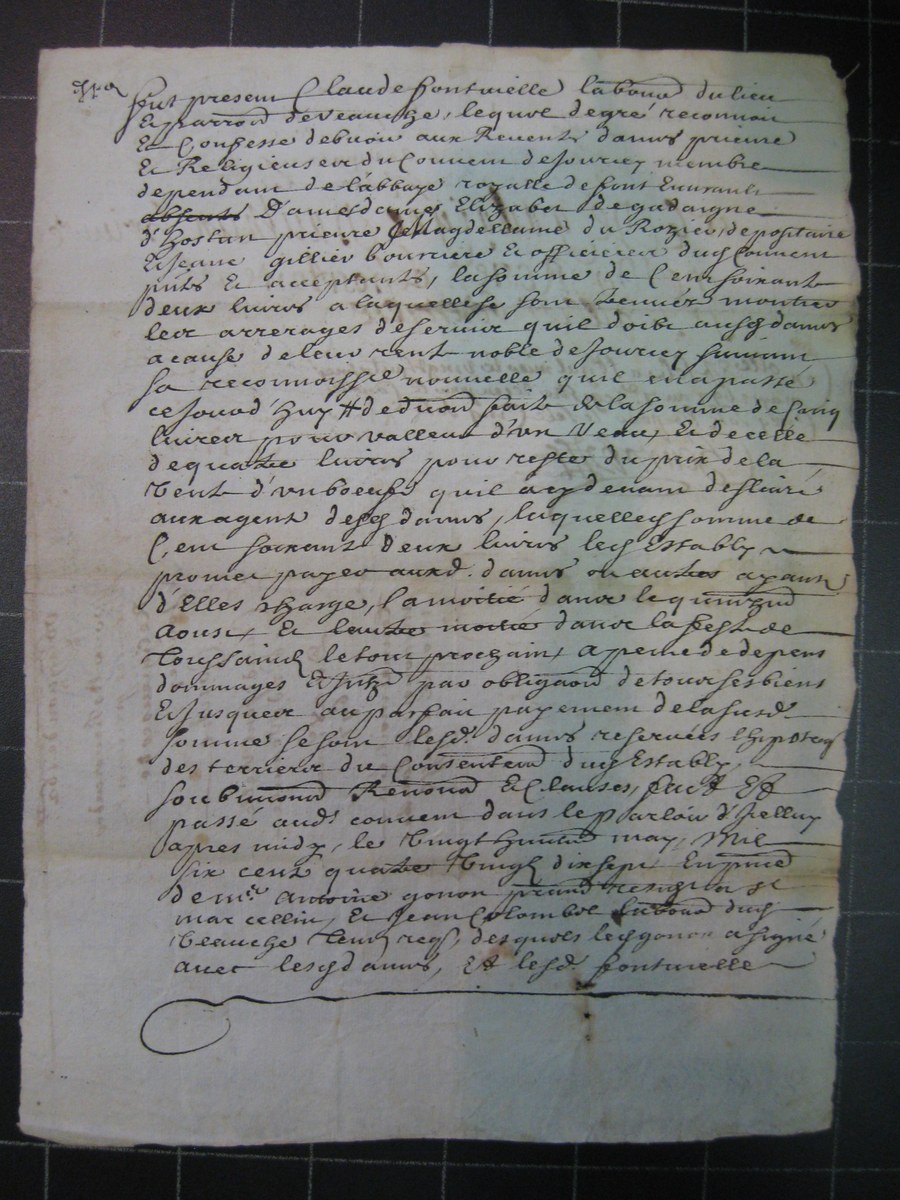 fut present Claude fontvielle labour du lieu
Et parroisse de veauche, lequel de gré reconnoit
Et Confesse debvoir aux Reverentes dames prieure
Et Religieuses du Convent de Jourcey membre
dependant de l'abbaye royalle de font Evrault
absents Dames dames Elizabet de gadaigne
d'Hostun prieure Magdellaine du Rozier, depositaire
Et Jeanne gillier boursiere Et officieres dud Convent
pntes Et acceptants, la somme de Cent soixante
deux livres a laquelle se sont trouvés monter
les arrerages de servis quil doibt ausd dames
a cause de leur rente noble de Jourcey suivant
sa reconnoissce nouvelle quil en a passé
ce Jourd'huy deduon faite de la somme de Cinq
livres pour valleur d'un Veau, Et de celle
de quatre livres pour reste du prix de la
vente d'un boeuf quil a cy devant deslivré
aux agent desd dames, laquelle somme de
Cent soixante deux livres led Estably
promet payer auxd. dames ou autres ayants
d'Elles charge, la moitié dans le quinze
aoust, Et lautre moitié dans la feste de
Toussaincts le tout prochain, a peine de depens
dommages Et par obligaon de tous ses biens
Et Jusques au parfait payement de la susd
somme se sont lesd. dames reservées
des terriers du Consentemt dud Estably
soubmissions Renons Et Clauses, fait Et
passé aud convent dans le parloir d'Icelluy
apres midy, le vingt huict may, Mil
six cent quatre vingts dix sept En pnce
de mre Antoine gonon st
marcellin, Et Jean Colombet labour dud
veauche desquels led gonon a signé
avec lesd dames, Et led. fontvielle